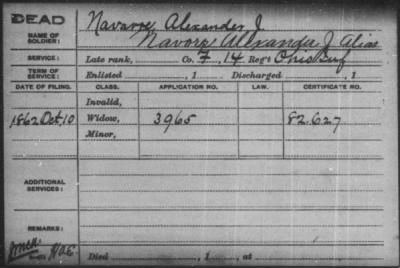 DEAD Navarre Alexander J
NAME OF SOLDIER: Navore Alexander J. Alias
SERVICE: Late rank, Co. F, 14 Reg't Ohio Inf
TERM OF SERVICE: Enlisted , 1 Discharged , 1
DATE OF FILING. CLASS. APPLICATION NO. LAW. CERTIFICATE NO.
Invalid,
1862 Oct, 10 Widow, 3965 82.627
Minor,
ADDITIONAL SERVICES:
REMARKS:
Died , 1 , at